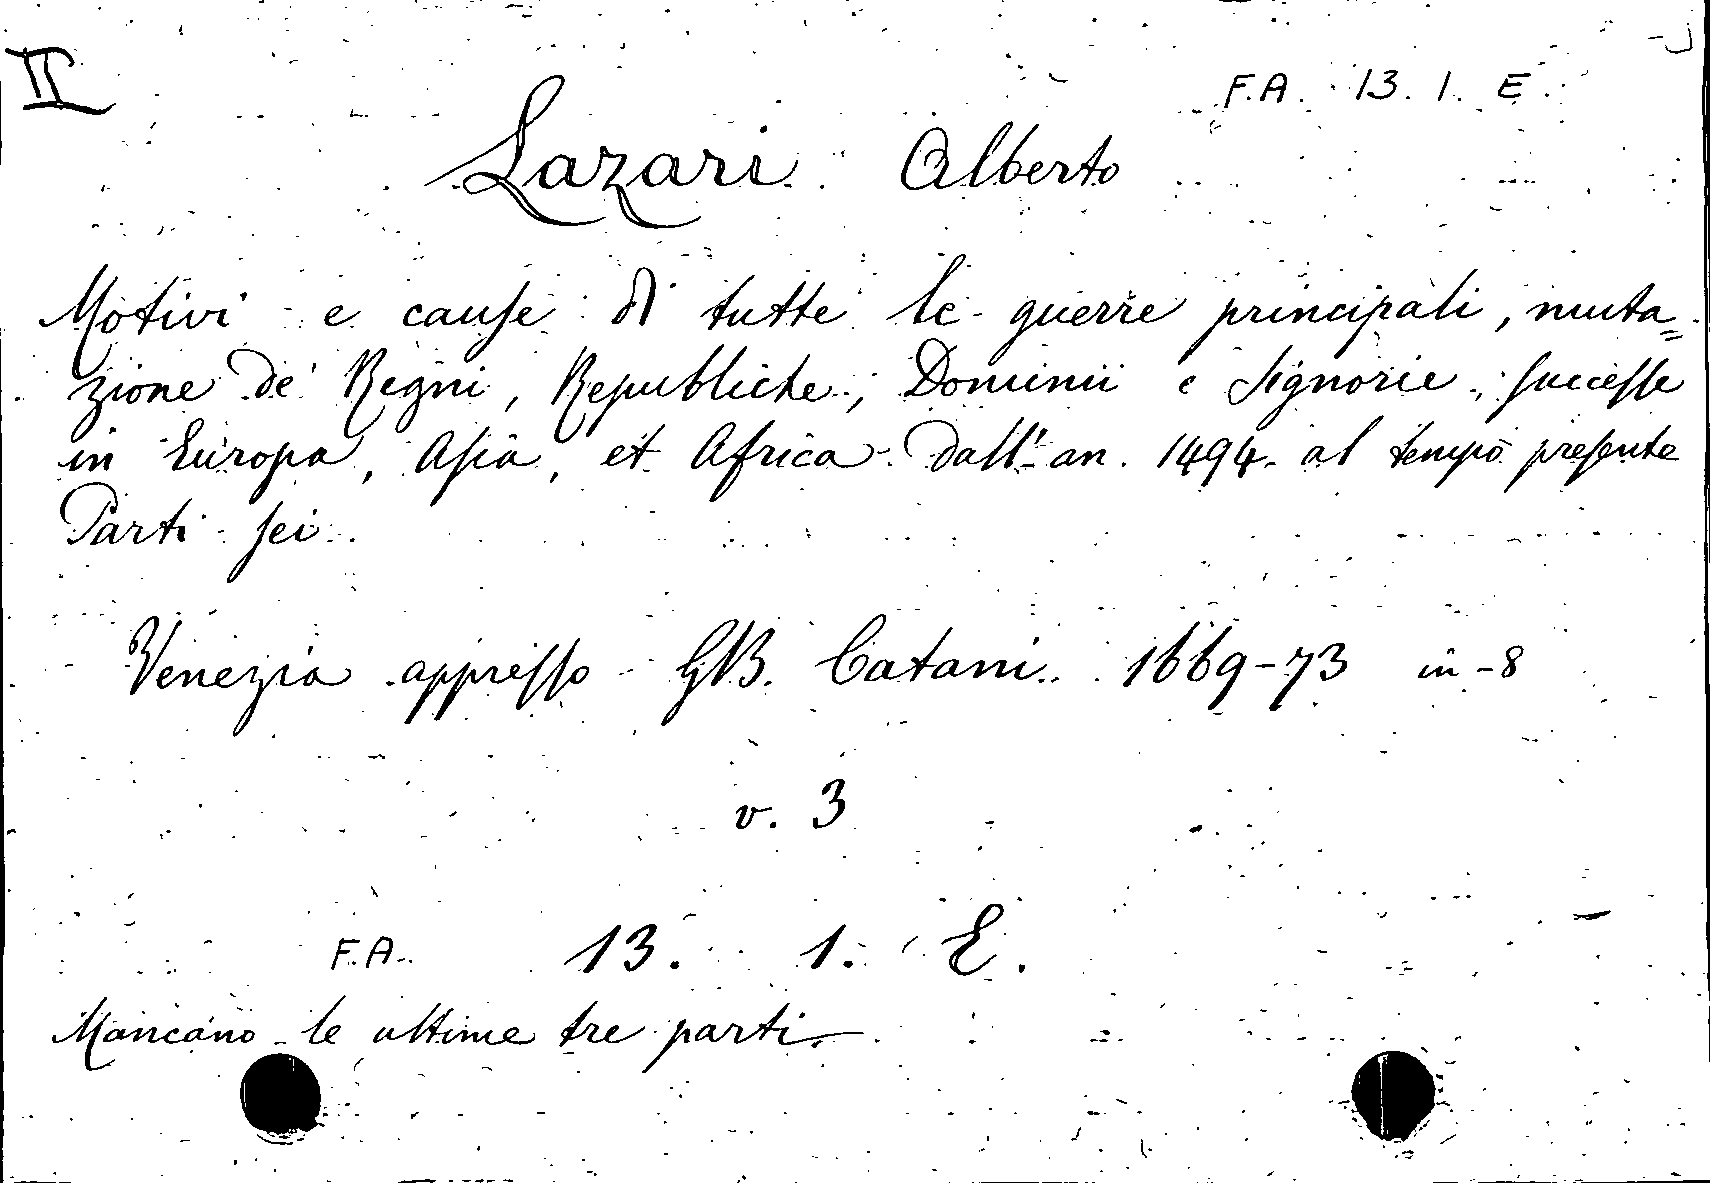 II
F.A. 13. 1. E.
Lazari Alberto
Motivi e cause di tutte le guerre principali, muta=
zione de' Regni, Republiche, Dominii e Signorie, successe
in Europa, Asia, et Africa dall' an. 1494. al tempo presente
Parti sei.
Venezia appresso GB. Catani. 1669-73 in-8
v. 3
F.A. 13. 1. E.
Mancano le ultime tre parti.